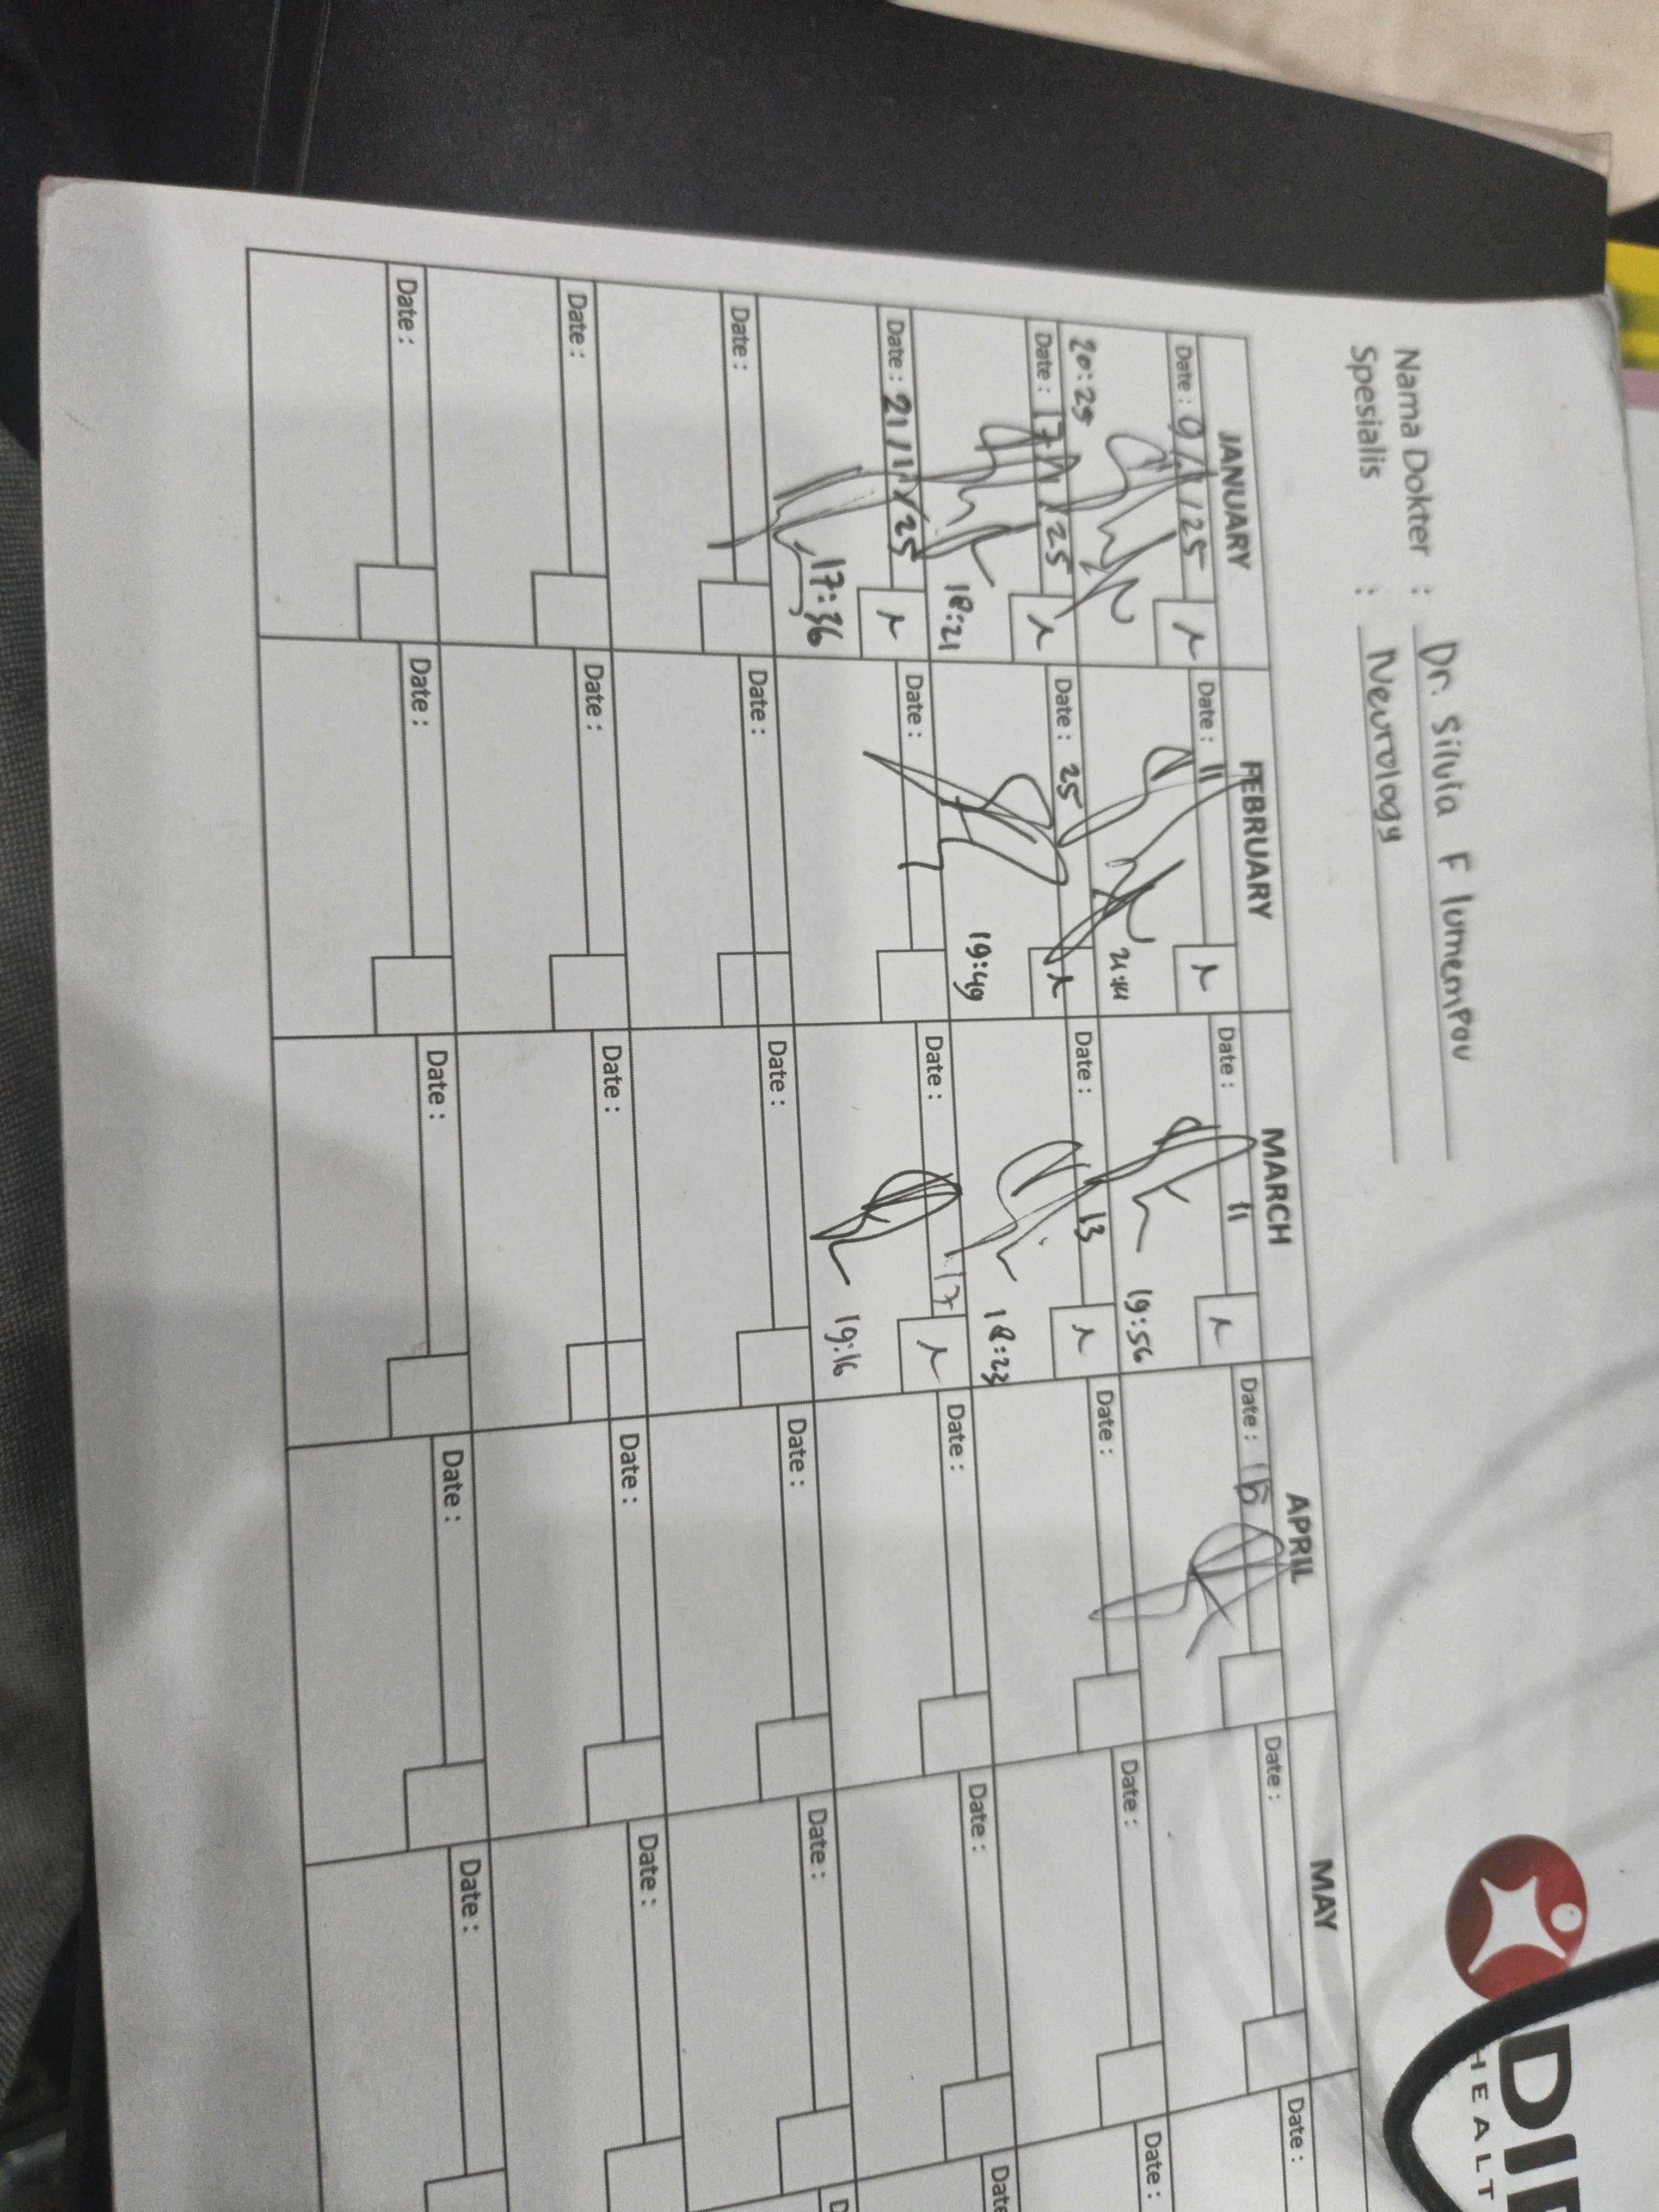 DI
HEALT
Nama Dokter : Dr. Silvia F lumempou
Spesialis : Neurology
JANUARY FEBRUARY MARCH APRIL MAY
Date : 9/1/25 Date : 11 Date : 11 Date : Date : Date :
20:29 21:14 19:56
Date : 17/1/25 Date : 25 Date : 13 Date : Date : Date :
18:21 19:49 18:23
Date : 21/1/25 Date : Date : 17 Date : Date : Date
17:36 19:16
Date : Date : Date : Date : Date : D
Date : Date : Date : Date : Date :
Date : Date : Date : Date : Date :